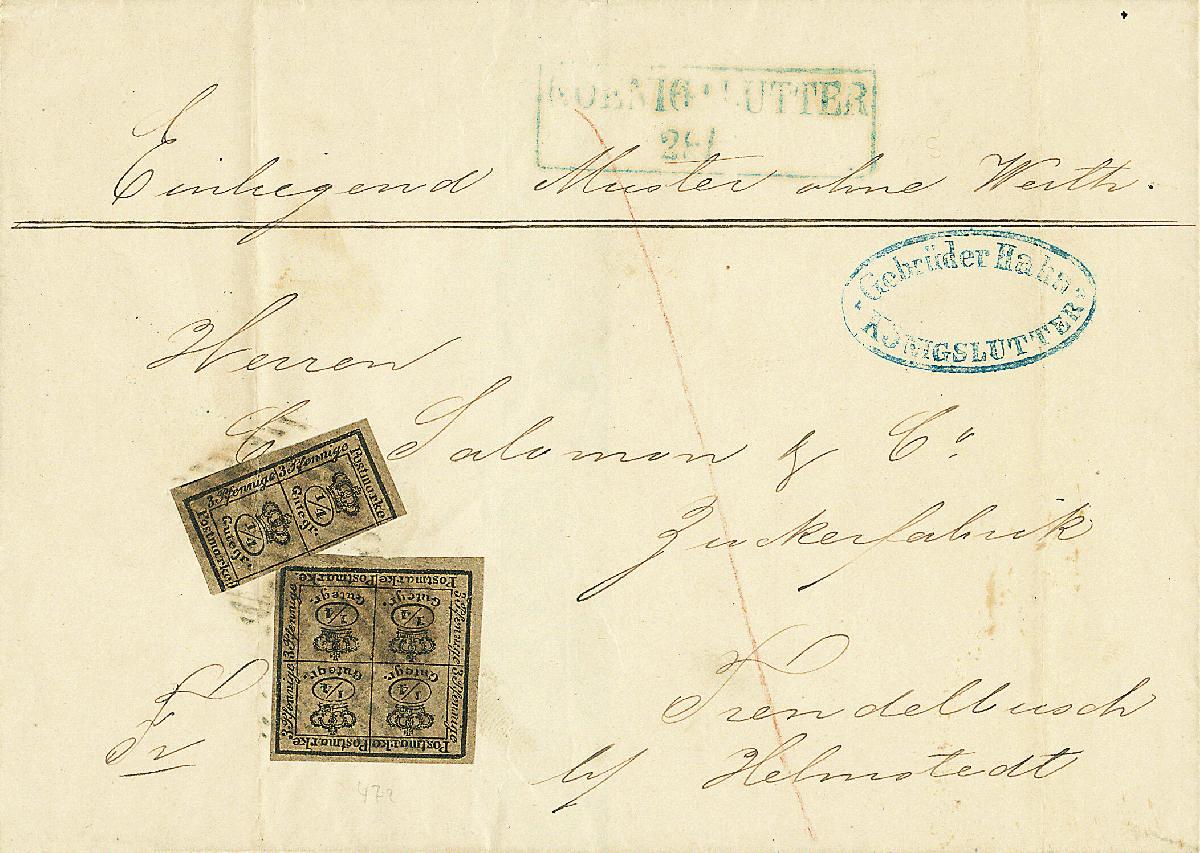 KOENIGSLUTTER
Einliegend Muster ohne Werth.
Gebrüder Hahn
KÖNIGSLUTTER
Herren
C Salomon & Co
Zuckerfabrik
Trendelbusch
b/ Helmstedt
Fr
3 Pfennige 3 Pfennige
Postmarke
Postmarke
1/4 Gutegr.
1/4 Gutegr.
Postmarke Postmarke Postmarke Postmarke
3 Pfennige 3 Pfennige
3 Pfennige 3 Pfennige
1/4 Gutegr.
1/4 Gutegr.
1/4 Gutegr.
1/4 Gutegr.
Postmarke Postmarke Postmarke Postmarke